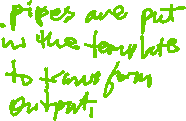 . pipes are put
in the template
to transform
output,